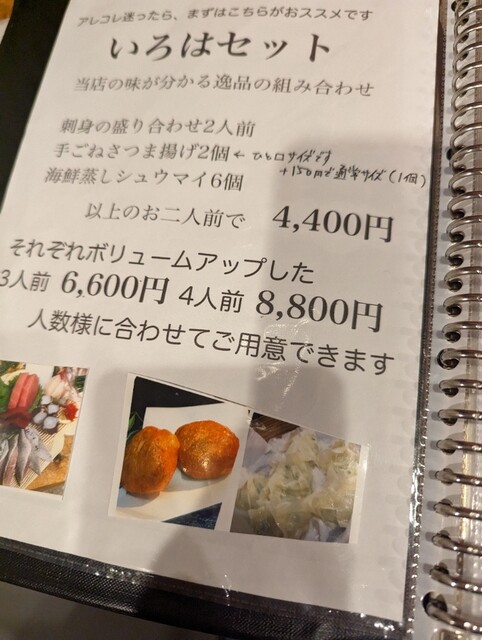 アレコレ迷ったら、まずはこちらがおススメです
いろはセット
当店の味が分かる逸品の組み合わせ
刺身の盛り合わせ2人前
手ごねさつま揚げ2個 ← ひと口サイズです
海鮮蒸しシュウマイ6個 +150円で通常サイズ(1個)
以上のお二人前で 4,400円
それぞれボリュームアップした
3人前 6,600円 4人前 8,800円
人数様に合わせてご用意できます